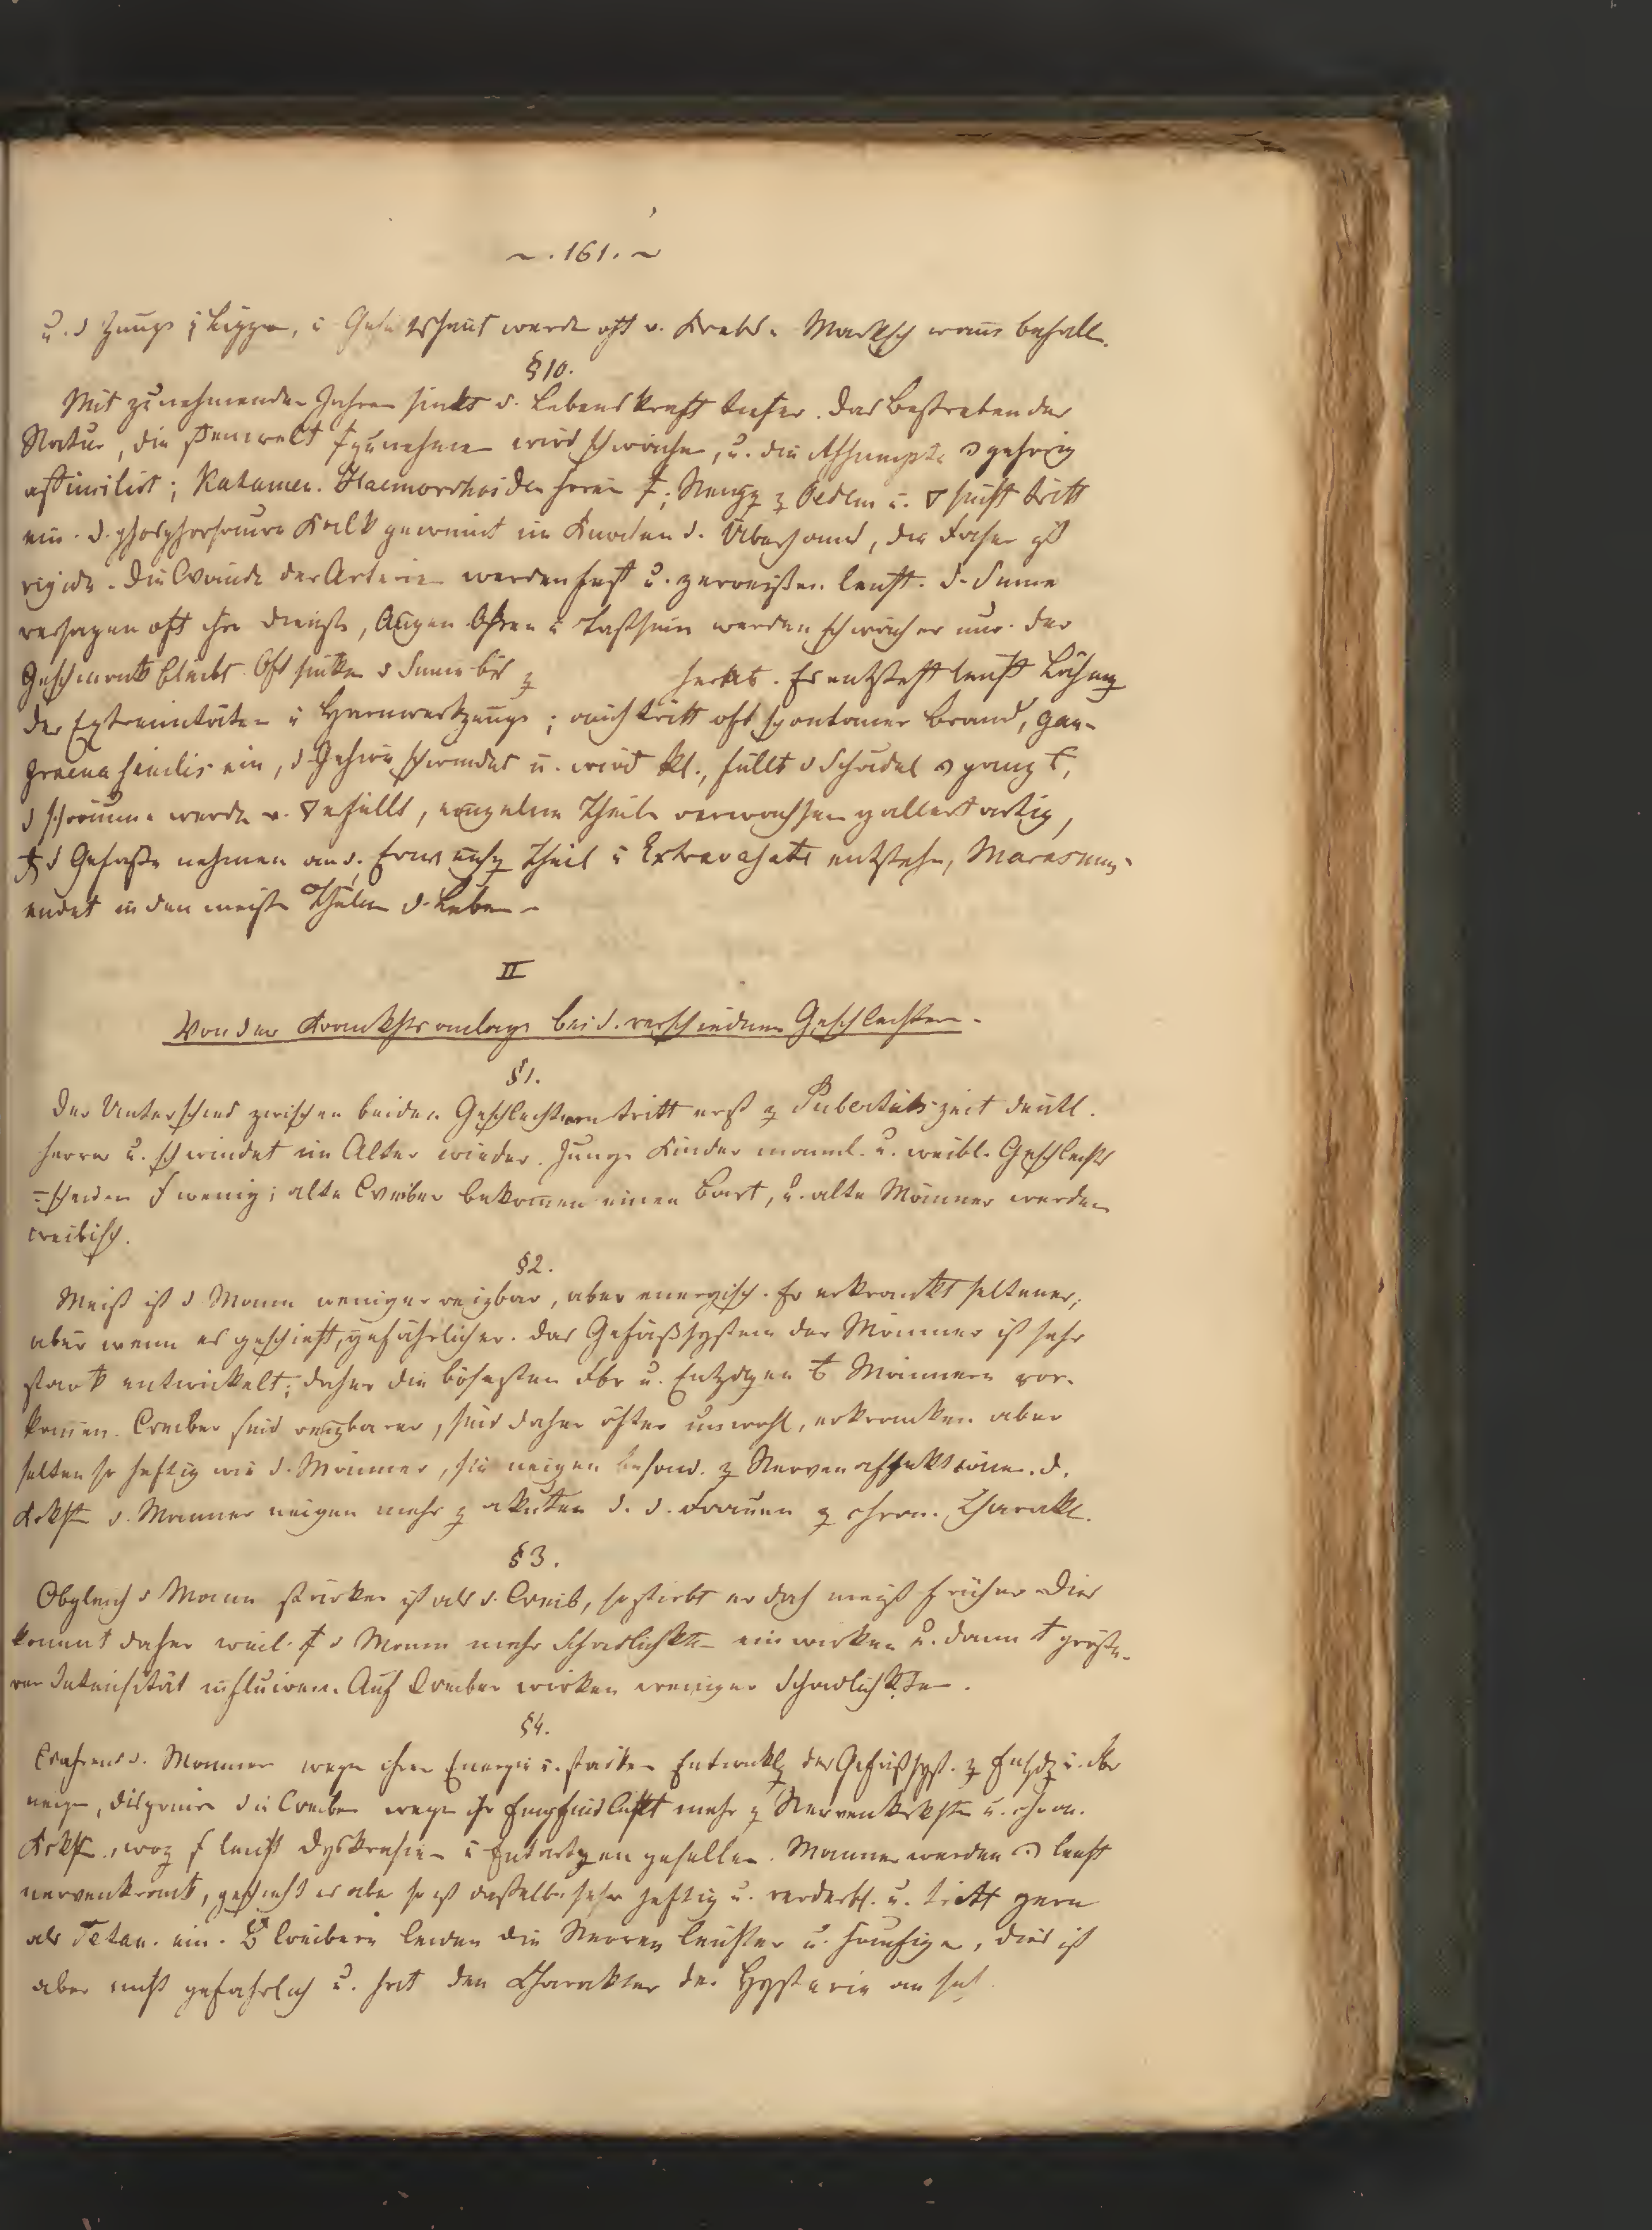 ~ . 161 . ~
u. d Zunge, Lippen, u Gesichtshaut werde oft v. Krebs u Markschwamm befall.
§ 10.
Mit zunehmenden Jahren sinkt d. Lebenskraft tiefer. Das Bestreben der
Natur, die zunehme wird schwächer, u. die gehörig
assimilirt; Katamen. Haemorrhoiden hören; Neigg z Oedem u. sucht tritt
ein. D. phosphorsaure Kalk gewinnt im Knochen d. Überhand, die Faser ist
rigide. Die Wände der Arterien werden fest u. zerreißen leicht. D. Sinne
versagen oft ihre Dienste, Augen Ohren u Tastsinn werden schwächer nur der
Geschmack bleibt. Oft sinken d Sinne bis z herab. Es entsteht leicht Lähmg
der Extremitäten u Harnwerkzeuge; auch tritt oft spontaner Brand, gan-
graena senilis ein, d. Gehirn schwindet u. wird kl., füllt d Schädel ganz,
d Räume werde v. erfüllt, einzelne Theile verwachsen gallertartig,
d Gefäße nehmen an d. Theil u Extravasate entstehn, Marasmus
endet in den meisten d. Leben.
II
Von der Krankhtsanlage bei d. verschiednen Geschlechtern.
§ 1.
Der Unterschied zwischen beiden Geschlechtern tritt erst z Pubertätszeit deutl.
hervor u. schwindet im Alter wieder. Junge Kinder männl. u. weibl. Geschlechts
=scheiden wenig; alte Weiber bekommen einen Bart, u. alte Männer werden
weibisch.
§ 2.
Meist ist d Mann weniger reizbar, aber energisch. Er erkrankt seltener;
aber wenn es geschieht, gefährlicher. Das Gefäßsystem der Männer ist sehr
stark entwickelt; daher die bösesten Fbr u. Entzdgen Männern vor-
kommen. Weiber sind reizbarer, sind daher öfter unwohl, erkranken aber
selten so heftig wie d. Männer, sie neigen besond. z Nervenaffektionen. D.
Krkhtn d. Männer neigen mehr z akuten d. d. Frauen z chron. Charakt.
§ 3.
Obgleich d Mann stärker ist als d. Weib, so stirbt er doch meist früher. Dies
kommt daher weil d Mann mehr Schädlichktn einwirken u. dann größe-
rer Intensität influiren. Auf Weiber wirken weniger Schädlichktn.
§ 4.
Während d. Männer wegen ihrer Energie u. starken Entwicklg des Gefäßsyst. z Entzdg u. Fbr
neigen, disponiren die Weiber wegen ihr Empfindlichkt mehr z Nervenkrkhtn u. chron.
Krkhtn, woz leicht Dyskrasien u Entartgen gesellen. Männer werden leicht
nervenkrank, geschieht es aber so ist dasselbe sehr heftig u. verderbl. u. tritt gern
als Tetan. ein. Weibern leiden die Nerven leichter u. häufiger, dies ist
aber nicht gefährlich u. hat den Charakter der Hysterie an sich.